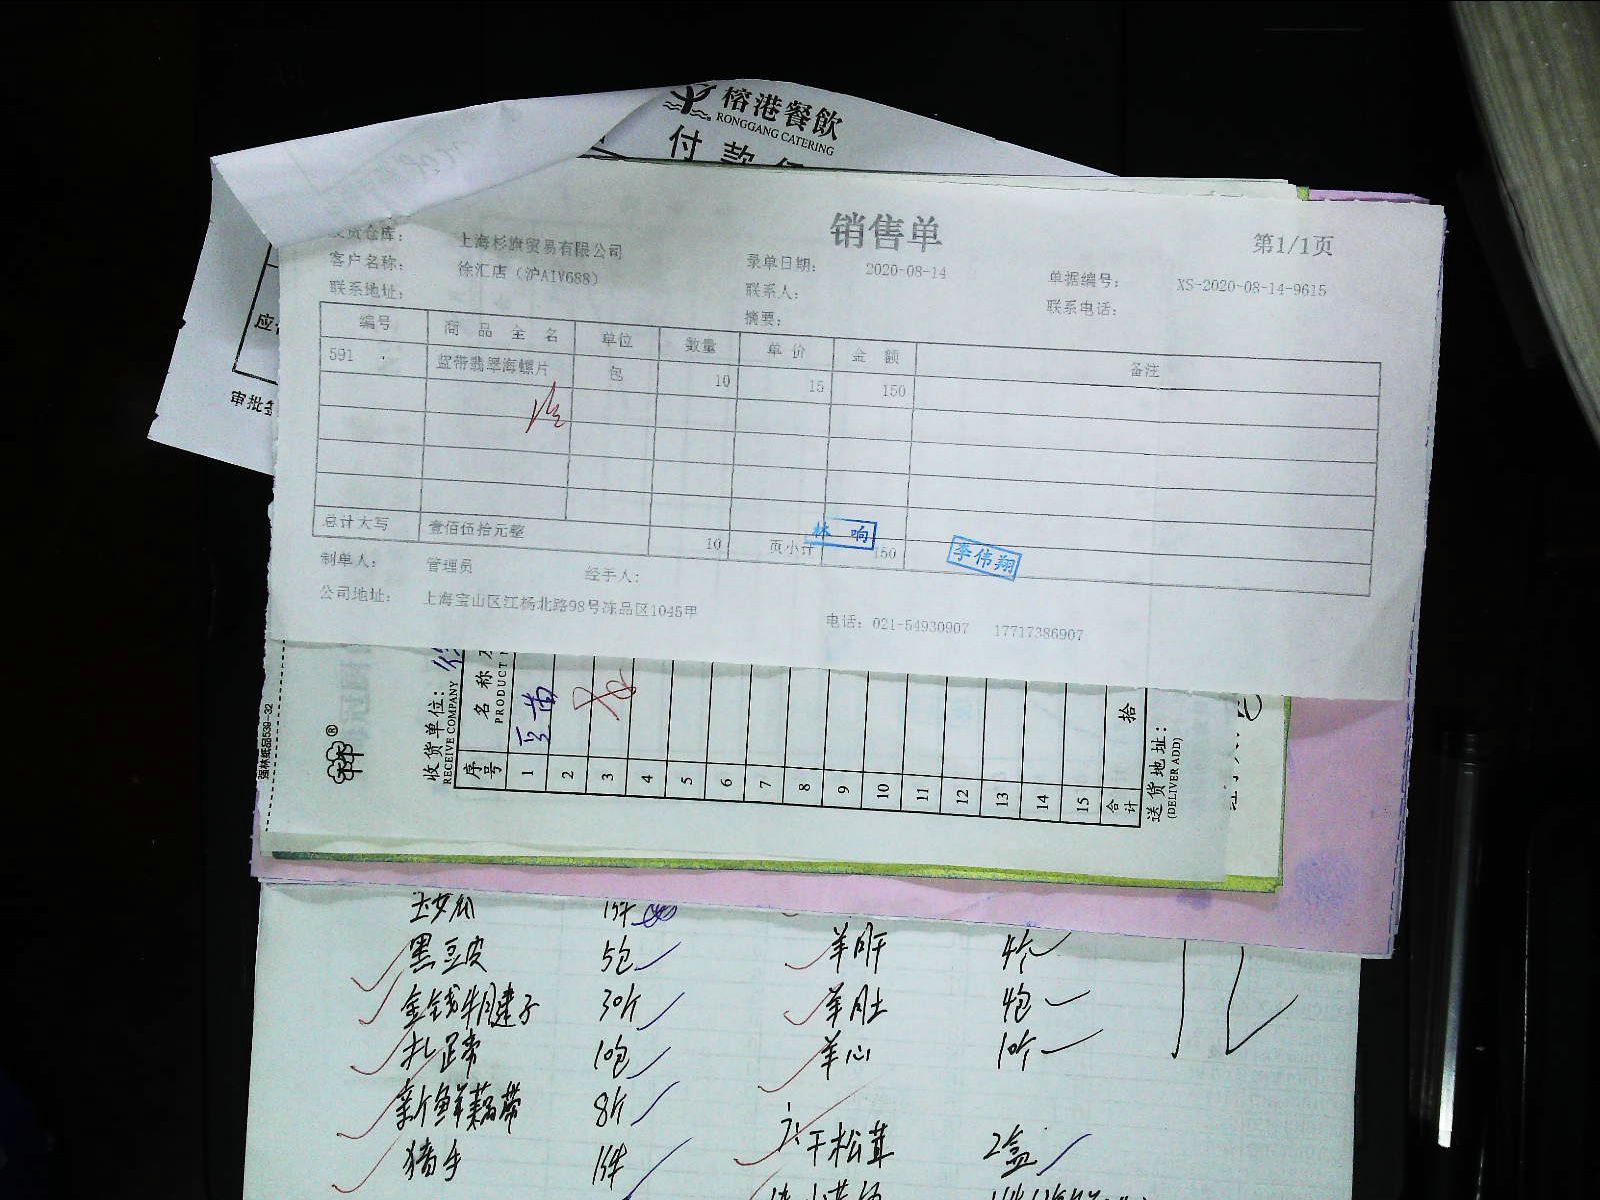 榕港餐飲
RONGGANG CATERING
付款
销售单
第1/1页
仓库： 上海杉旗贸易有限公司
录单日期： 2020-08-14
单据编号： XS-2020-08-14-9615
客户名称： 徐汇店（沪A1V688）
联系人：
联系电话：
联系地址：
摘要：
编号 商品全名 单位 数量 单价 金额 备注
591 蓝带翡翠海螺片 包 10 15 150
总计大写 壹佰伍拾元整 10 页小计 150
林响
李伟翔
制单人： 管理员 经手人：
公司地址： 上海宝山区江杨北路98号冻品区1045甲
电话：021-54930907 17717386907
应
审批
强林纸品539-32
收货单位：
RECEIVE COMPANY
序号 名称
PRODUCT
1 豆苗
2
3
4
5
6
7
8
9
10
11
12
13
14
15
合计 拾
送货地址：
(DELIVER ADD)
玉女瓜 1件
黑豆皮 5包
羊肝 4个
金钱牛腱子 30斤
羊肚 4包
扎蹄 10包
羊心 10个
新鲜藕带 8斤
干松茸 2盒
猪手 1件